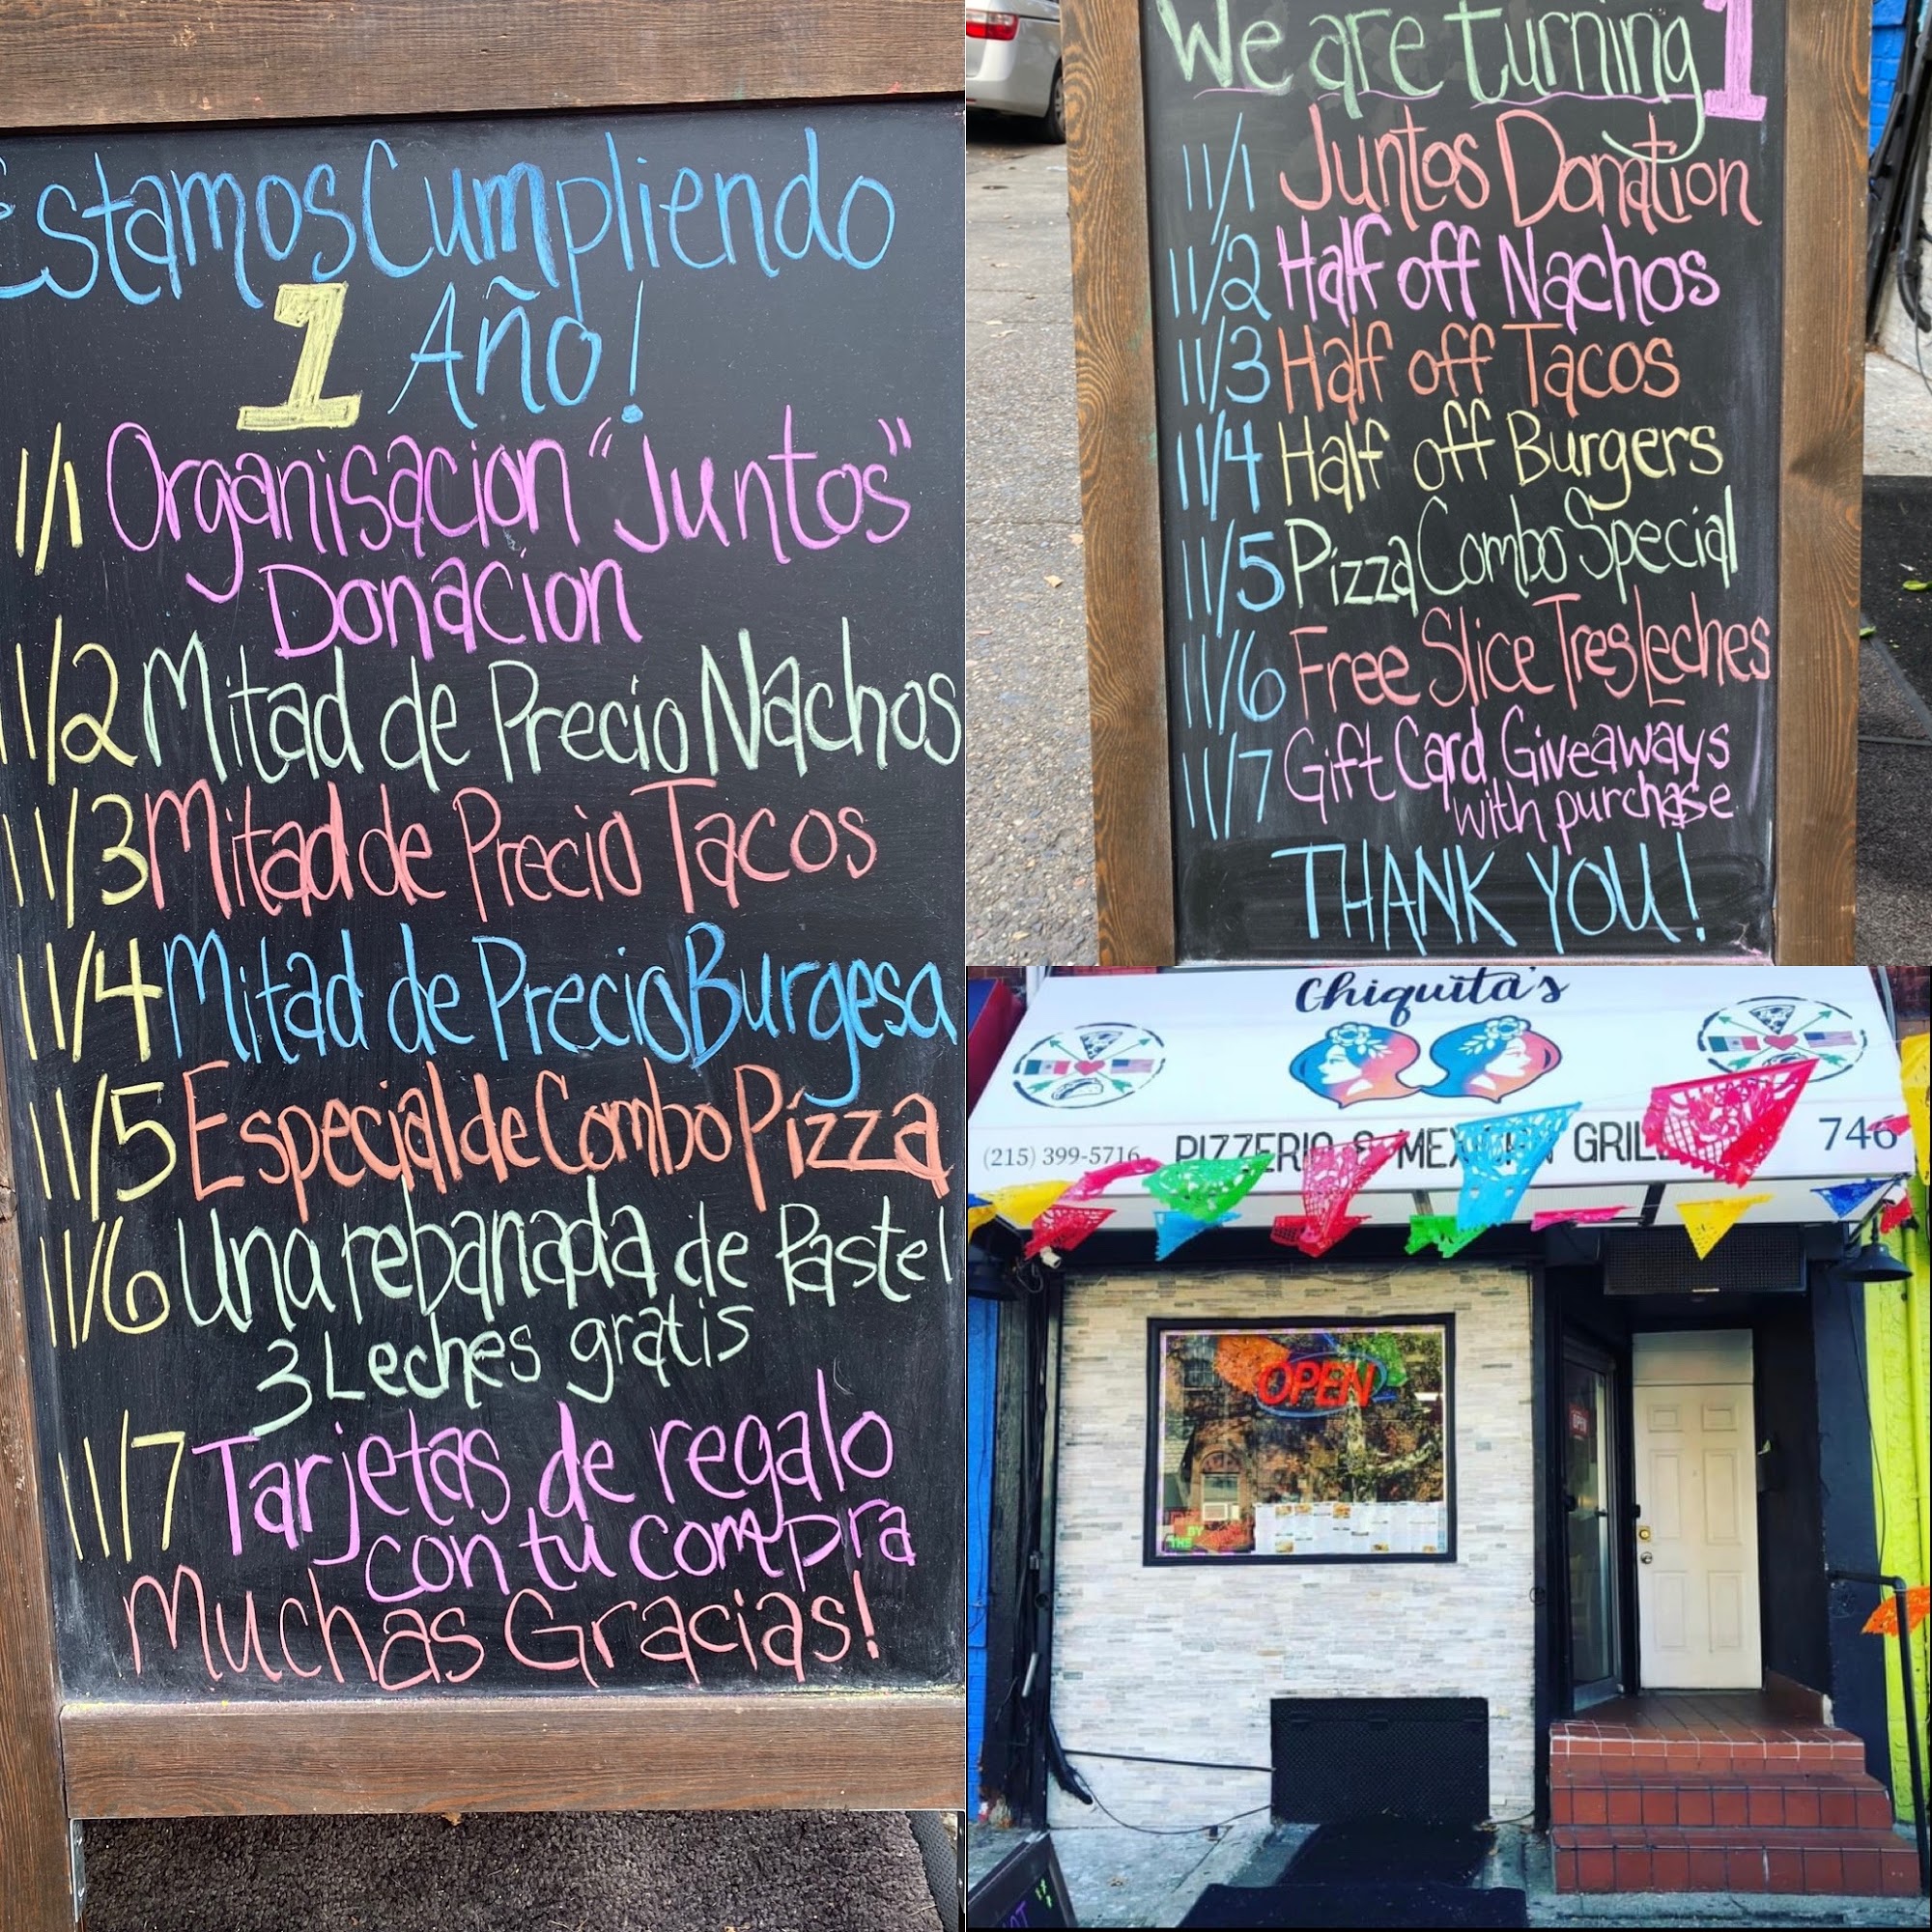 Estamos Cumpliendo
1 Año!
11/1 Organisacion "Juntos"
Donacion
11/2 Mitad de Precio Nachos
11/3 Mitad de Precio Tacos
11/4 Mitad de Precio Burgesa
11/5 Especial de Combo Pizza
11/6 Una rebanada de Pastel
3 Leches gratis
11/7 Tarjetas de regalo
con tu compra
Muchas Gracias!
We are turning 1
11/1 Juntos Donation
11/2 Half off Nachos
11/3 Half off Tacos
11/4 Half off Burgers
11/5 Pizza Combo Special
11/6 Free Slice Tres Leches
11/7 Gift Card Giveaways
with purchase
THANK YOU!
Chiquita's
(215) 399-5716 PIZZERIA & MEXICAN GRILL 746
OPEN
OPEN
BY
THE